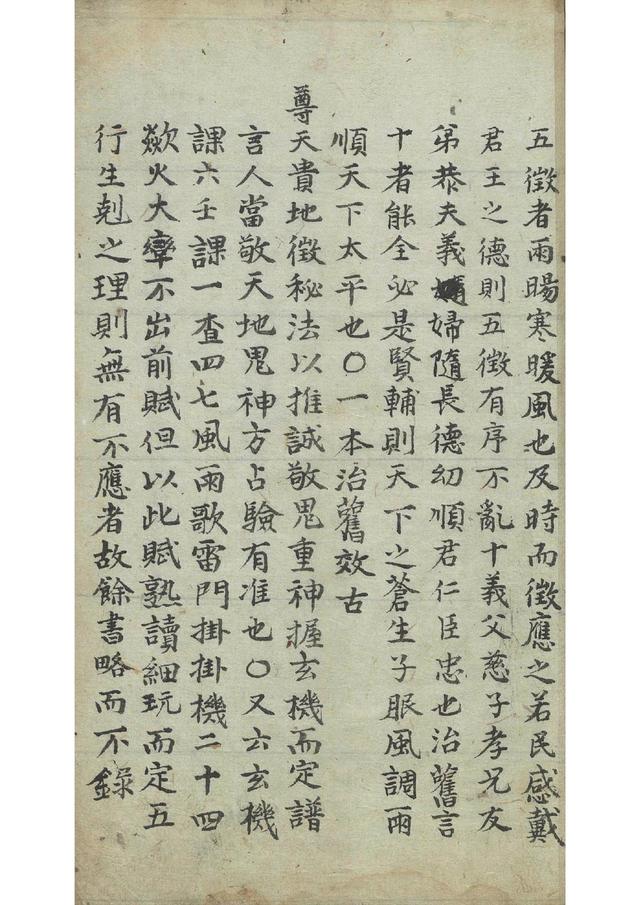 五徵者雨暘寒暖風也及時而徵應之若民感戴
君王之德則五徵有序不亂十義父慈子孝兄友
弟恭夫義婦隨長德幼順君仁臣忠也治舊言
十者能全必是賢輔則天下之蒼生子服風調雨
順天下太平也〇一本治舊效古
尊天貴地徵秘法以推誠敬鬼重神握玄機而定譜
言人當敬天地鬼神方占驗有准也〇又六玄機
課六壬課一查四七風雨歌雷門掛掛機二十四
歘火大彎不出前賦但以此賦熟讀細玩而定五
行生剋之理則無有不應者故餘書略而不錄